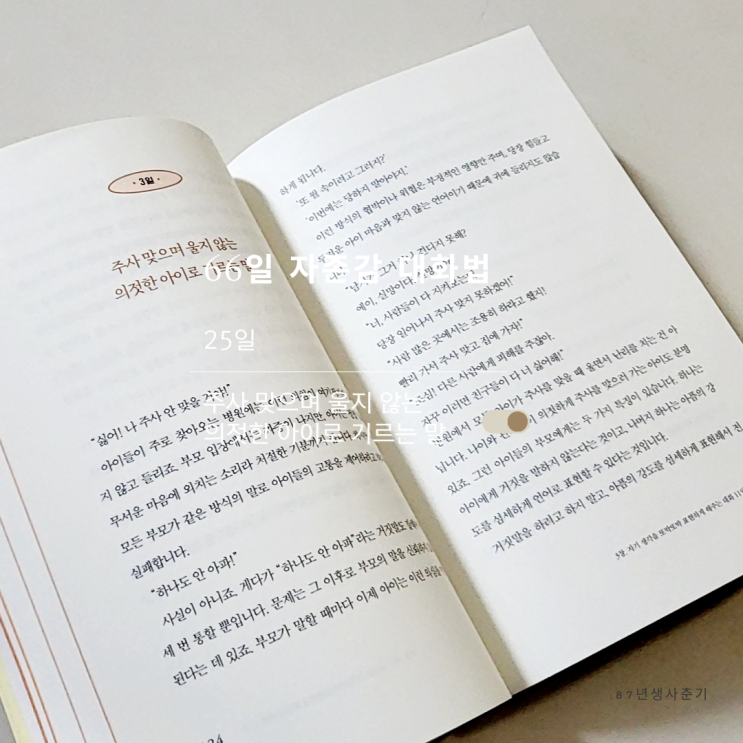 66일 자존감 대화법
25일
주사 맞으며 울지 않는
의젓한 아이로 기르는 말
3일
주사 맞으며 울지 않는
의젓한 아이로
"싫어! 나 주사 안 맞을
아이들이 주로 찾아오는 병원에
지 않고 들리죠. 부모 입장에서는
무서운 마음에 외치는 소리라 처절한 기분까지
모든 부모가 같은 방식의 말로 아이들의 고통을
실패합니다.
"하나도 안 아파!"
사실이 아니죠. 게다가 "하나도 안 아파"라는 거짓말도
세 번 통할 뿐입니다. 문제는 그 이후로 부모의 말을
된다는 데 있죠. 부모가 말할 때마다 이제 아이는 이런
하게 됩니다.
'또 뭔 속이려고 그러지?'
'이번에는 당하지 말아야지.'
이런 방식의 협박이나 위협은 부정적인 영향만 주며, 당장 힘들고
아이 마음과 맞지 않는 언어이기 때문에 귀에 들리지도 않습
그게 견디지 못해?
에이, 실망이다
"너, 사람들이 다 지켜보는
당장 일어나서 주사 맞지 못하겠어!"
"사람 많은 곳에서는 조용히 하라고 했지!
빨리 가서 주사 맞고 집에 가자!"
다른 사람에게 피해를 주잖아.
이러면 친구들이 다 널 싫어해!"
주사를 맞을 때 울면서 난리를 치는 건 아
닙니다. 나이와 의젓하게 주사를 맞으러 가는 아이도 분명
있죠. 그런 아이들의 부모에게는 두 가지 특징이 있습니다. 하나는
아이에게 거짓을 말하지 않는다는 것이고, 나머지 하나는 아픔의 강
도를 섬세하게 언어로 표현할 수 있다는 것입니다.
거짓말을 하려고 하지 말고, 아픔의 강도를 섬세하게 표현해서
5장. 자기 생각을 또박또박 표현하게 해주는 대화
87년생사춘기